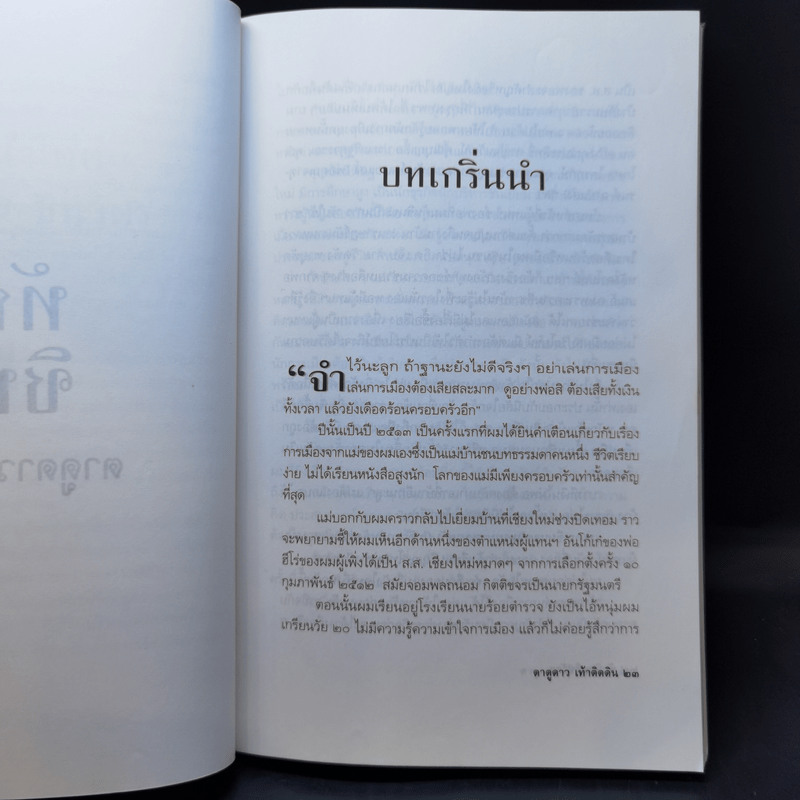 บทเกริ่นนำ
“จำไว้นะลูก ถ้าฐานะยังไม่ดีจริงๆ อย่าเล่นการเมือง
เล่นการเมืองต้องเสียสละมาก ดูอย่างพ่อสิ ต้องเสียทั้งเงิน
ทั้งเวลา แล้วยังเดือดร้อนครอบครัวอีก”
ปีนั้นเป็นปี ๒๕๑๓ เป็นครั้งแรกที่ผมได้ยินคำเตือนเกี่ยวกับเรื่อง
การเมืองจากแม่ของผมเองซึ่งเป็นแม่บ้านชนบทธรรมดาคนหนึ่ง ชีวิตเรียบ
ง่าย ไม่ได้เรียนหนังสือสูงนัก โลกของแม่มีเพียงครอบครัวเท่านั้นสำคัญ
ที่สุด
แม่บอกกับผมคราวกลับไปเยี่ยมบ้านที่เชียงใหม่ช่วงปิดเทอม ราว
จะพยายามชี้ให้ผมเห็นอีกด้านหนึ่งของตำแหน่งผู้แทนฯ อันโก้เก๋ของพ่อ
ฮีโร่ของผมผู้เพิ่งได้เป็น ส.ส. เชียงใหม่หมาดๆ จากการเลือกตั้งครั้ง ๑๐
กุมภาพันธ์ ๒๕๑๒ สมัยจอมพลถนอม กิตติขจรเป็นนายกรัฐมนตรี
ตอนนั้นผมเรียนอยู่โรงเรียนนายร้อยตำรวจ ยังเป็นไอ้หนุ่มผม
เกรียนวัย ๒๐ ไม่มีความรู้ความเข้าใจการเมือง แล้วก็ไม่ค่อยรู้สึกว่าการ
ตาดูดาว เท้าติดดิน ๒๓
ตาดูดาว